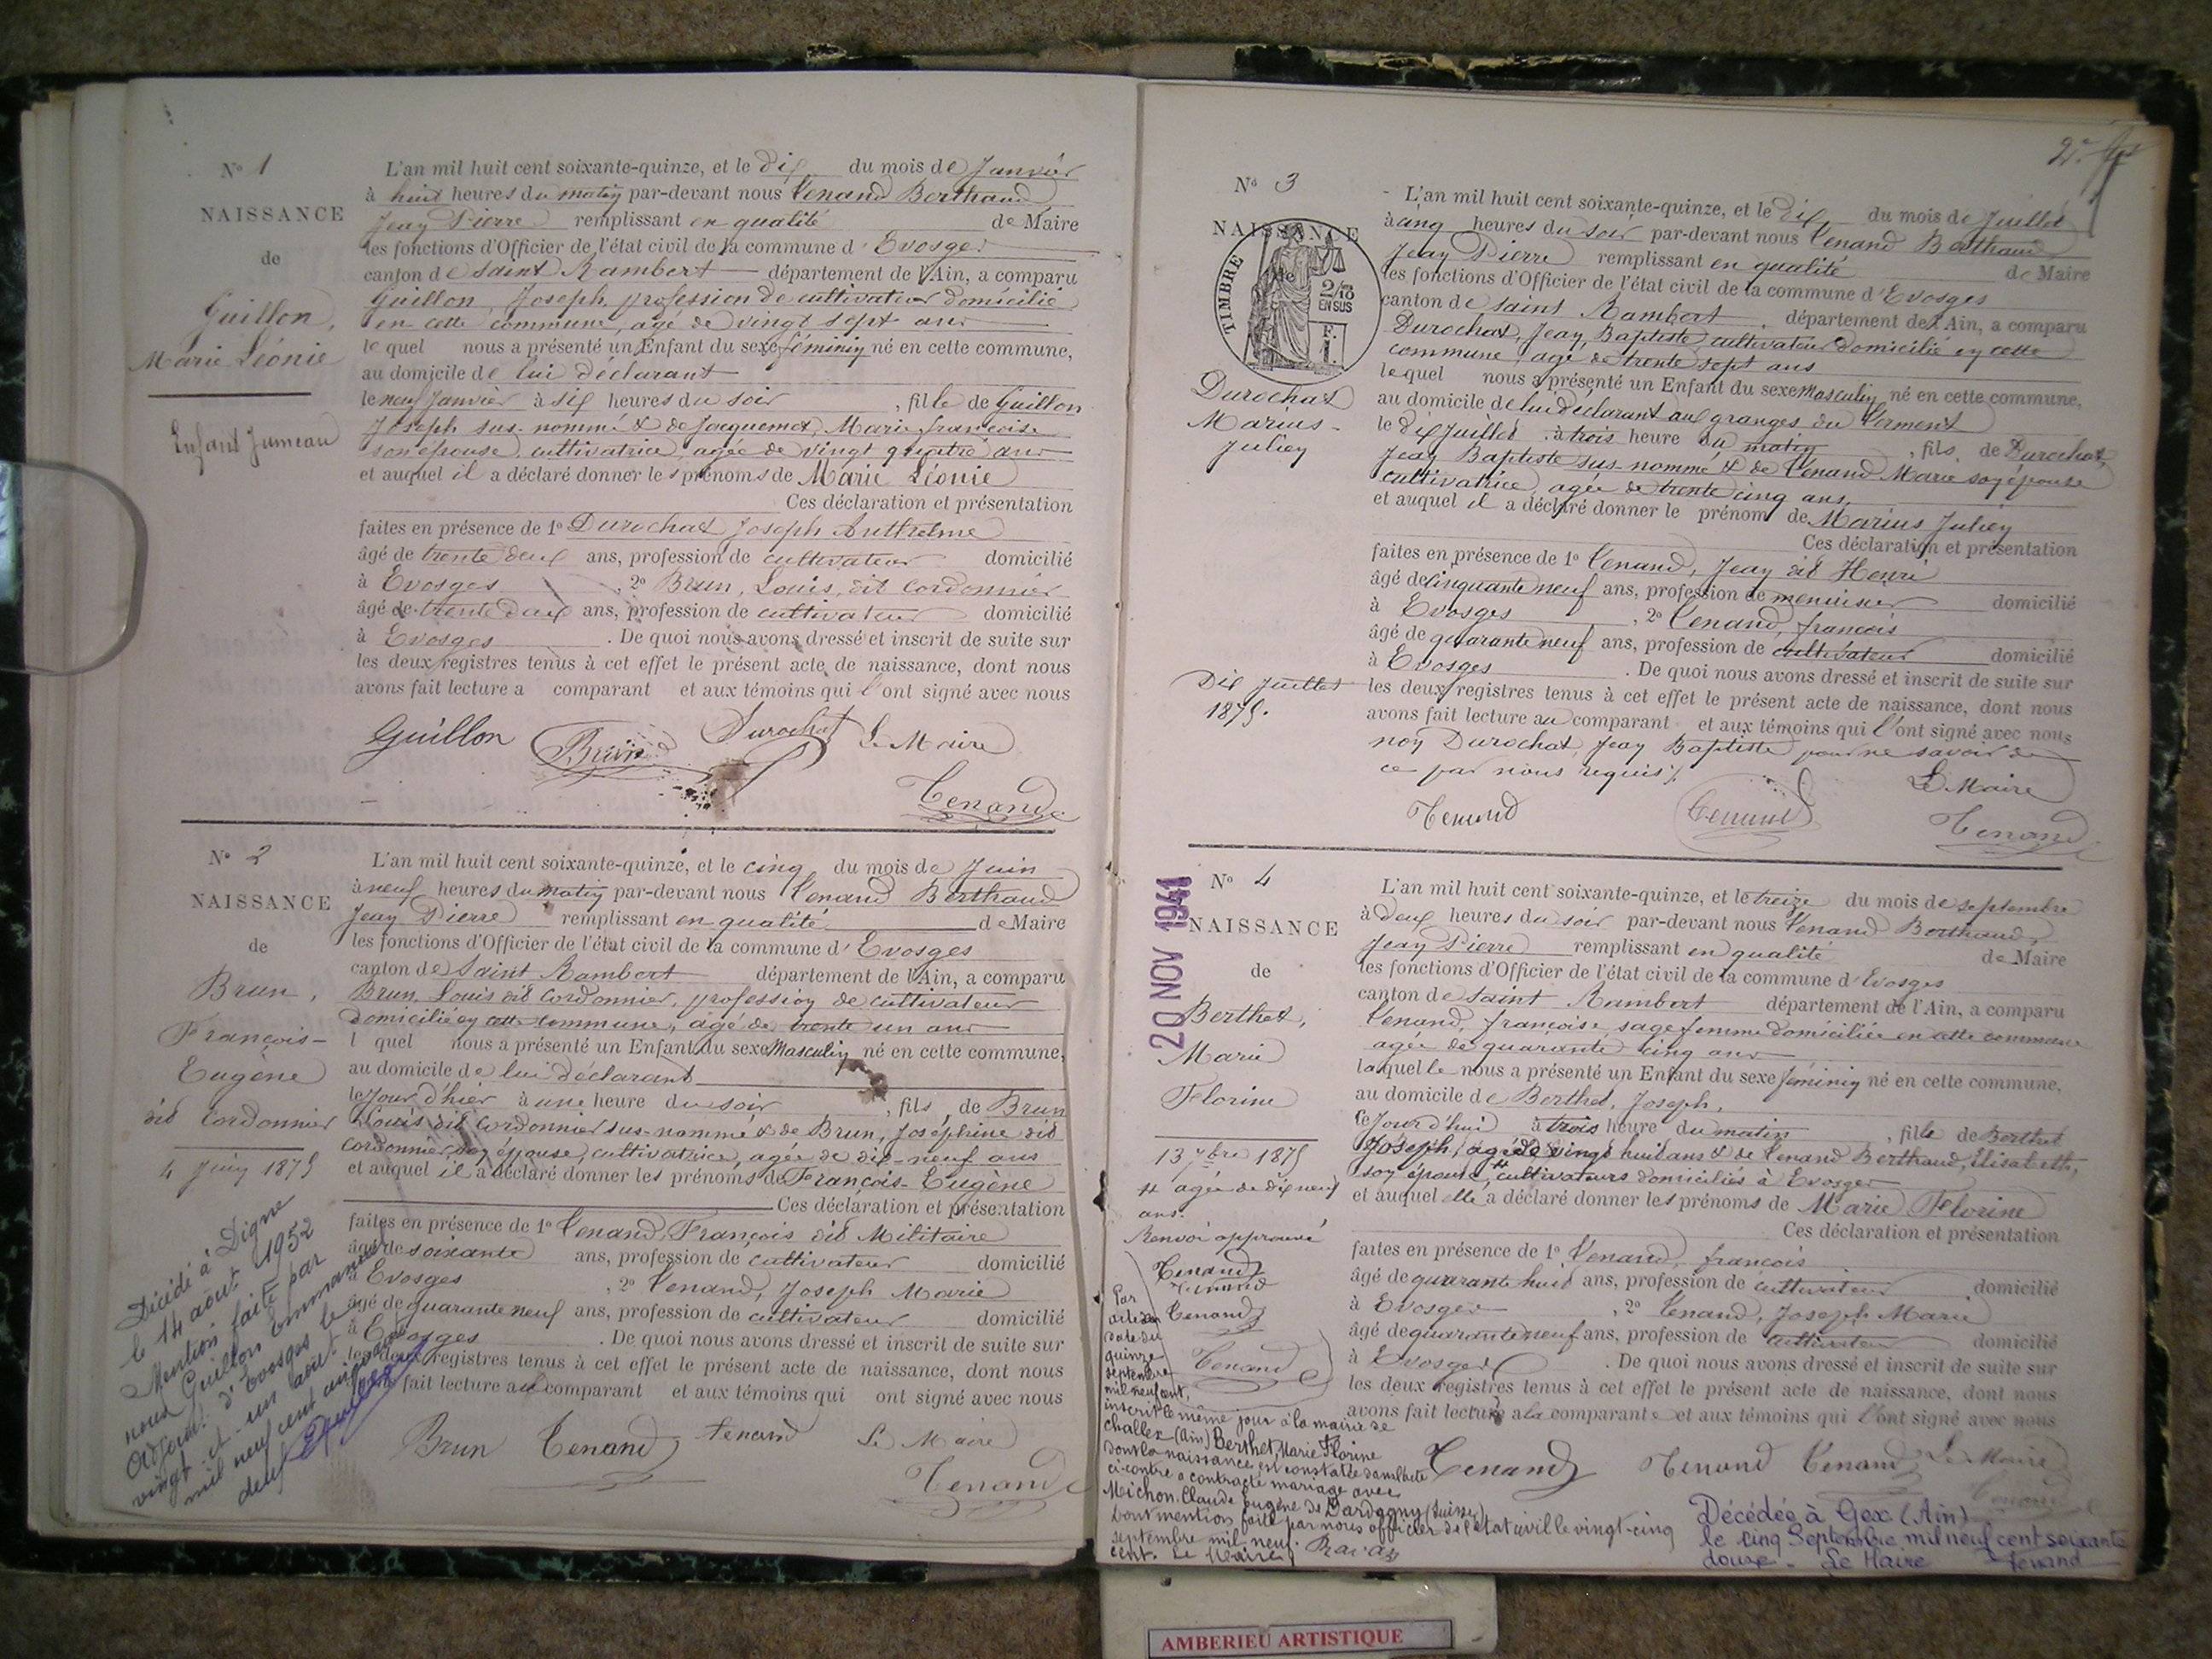 N° 1
NAISSANCE
de
Guillon,
Marie Léonie
Enfant Jumeau
L'an mil huit cent soixante-quinze, et le dix du mois de Janvier
à huit heures du matin par-devant nous Tenand Berthaud
Jean Pierre remplissant en qualité de Maire
les fonctions d'Officier de l'état civil de la commune d'Evosges
canton de saint Rambert département de l'Ain, a comparu
Guillon, Joseph, profession de cultivateur domicilié
en cette commune, agé de vingt sept ans
lequel nous a présenté un Enfant du sexe féminin né en cette commune,
au domicile de lui déclarant
le neuf Janvier à six heures du soir, fille de Guillon
Joseph sus-nommé & de Jacquemet, Marie françoise
son épouse, cultivatrice, agée de vingt quatre ans
et auquel il a déclaré donner les prénoms de Marie Léonie
Ces déclaration et présentation
faites en présence de 1° Durochat Joseph Anthelme
âgé de trente deux ans, profession de cultivateur domicilié
à Evosges, 2° Brun, Louis, dit Cordonnier
âgé de trente deux ans, profession de cultivateur domicilié
à Evosges. De quoi nous avons dressé et inscrit de suite sur
les deux registres tenus à cet effet le présent acte de naissance, dont nous
avons fait lecture a comparant et aux témoins qui l'ont signé avec nous
Guillon Brun Durochat Le Maire
Tenand
N° 2
NAISSANCE
de
Brun,
François-
Eugène
dit Cordonnier
4 Juin 1875
Décédé à Digne
le 14 août 1952
Mention faite par
nous Guillon Emmanuel
Adjoint d'Evosges le
vingt-et-un août
mil neuf cent cinquante
deux
L'an mil huit cent soixante-quinze, et le cinq du mois de Juin
à neuf heures du matin par-devant nous Tenand Berthaud
Jean Pierre remplissant en qualité de Maire
les fonctions d'Officier de l'état civil de la commune d'Evosges
canton de Saint Rambert département de l'Ain, a comparu
Brun, Louis dit Cordonnier, profession de cultivateur
domicilié en cette commune, agé de trente un ans
l quel nous a présenté un Enfant du sexe Masculin né en cette commune,
au domicile de lui déclarant
le Jour d'hier à une heure du soir, fils de Brun
Louis dit Cordonnier sus-nommé & de Brun, Joséphine dit
Cordonnier, son épouse, cultivatrice, agée de dix-neuf ans
et auquel il a déclaré donner les prénoms de François-Eugène
Ces déclaration et présentation
faites en présence de 1° Tenand, François dit Militaire
âgé de soixante ans, profession de cultivateur domicilié
à Evosges, 2° Tenand, Joseph Marie
âgé de quarante neuf ans, profession de cultivateur domicilié
à Evosges. De quoi nous avons dressé et inscrit de suite sur
les deux registres tenus à cet effet le présent acte de naissance, dont nous
avons fait lecture au comparant et aux témoins qui ont signé avec nous
Brun Tenand tenand Le Maire
Tenand
N° 3
NAISSANCE
de
TIMBRE
2/10
EN SUS
Durochat
Marius-
Julien
Dix Juillet
1875.
L'an mil huit cent soixante-quinze, et le dix du mois de Juillet
à cinq heures du soir par-devant nous Tenand Berthaud
Jean Pierre remplissant en qualité de Maire
les fonctions d'Officier de l'état civil de la commune d'Evosges
canton de saint Rambert, département de l'Ain, a comparu
Durochat, Jean, Baptiste, cultivateur domicilié en cette
commune, agé de trente sept ans
lequel nous a présenté un Enfant du sexe Masculin né en cette commune,
au domicile de lui déclarant aux granges du Terment
le dix Juillet à trois heure du matin, fils de Durochat,
Jean Baptiste sus-nommé & de Tenand Marie son épouse
cultivatrice agée de trente cinq ans,
et auquel il a déclaré donner le prénom de Marius Julien
Ces déclaration et présentation
faites en présence de 1° Tenand, Jean dit Henri
âgé de cinquante neuf ans, profession de menuisier domicilié
à Evosges, 2° Tenand, françois
âgé de quarante neuf ans, profession de cultivateur domicilié
à Evosges. De quoi nous avons dressé et inscrit de suite sur
les deux registres tenus à cet effet le présent acte de naissance, dont nous
avons fait lecture au comparant et aux témoins qui l'ont signé avec nous
non Durochat, Jean Baptiste pour ne savoir de
ce par nous requis.
Le Maire
Tenand Tenand Tenand
N° 4
20 NOV 1941
NAISSANCE
de
Berthet,
Marie
Florine
13 7bre 1875
# agée de dix neuf
ans.
Renvoi approuvé
Tenand
Tenand
Tenand
Tenand
Par
acte en
date du
quinze
septembre
mil neuf cent,
inscrit le même jour à la mairie de
Challex (Ain) Berthet, Marie Florine
dont la naissance est constatée dans l'acte
ci-contre a contracté mariage avec
Michon, Claude Eugène de Dardagny (Suisse)
Dont mention faite par nous officier de l'état civil le vingt-cinq
septembre mil neuf
cent. Le Maire
L'an mil huit cent soixante-quinze, et le treize du mois de septembre
à deux heures du soir par-devant nous Tenand Berthaud,
Jean Pierre remplissant en qualité de Maire
les fonctions d'Officier de l'état civil de la commune d'Evosges
canton de Saint Rambert département de l'Ain, a comparu
Tenand, françoise, sage femme domiciliée en cette commune
agée de quarante cinq ans
laquelle nous a présenté un Enfant du sexe féminin né en cette commune,
au domicile de Berthet, Joseph,
le Jourd'hui à trois heure du matin, fille de Berthet
Joseph, agé de vingt huit ans & de Tenand Berthaud, Elisabeth,
son épouse, # cultivateurs domiciliés à Evosges
et auquel elle a déclaré donner les prénoms de Marie Florine
Ces déclaration et présentation
faites en présence de 1° Tenand, françois
âgé de quarante huit ans, profession de cultivateur domicilié
à Evosges, 2° Tenand, Joseph Marie
âgé de quarante neuf ans, profession de cultivateur domicilié
à Evosges. De quoi nous avons dressé et inscrit de suite sur
les deux registres tenus à cet effet le présent acte de naissance, dont nous
avons fait lecture a la comparante et aux témoins qui l'ont signé avec nous
Tenand Tenand Tenand Le Maire
Tenand
Décédée à Gex (Ain)
le cinq Septembre mil neuf cent soixante
douze - Le Maire Tenand
AMBERIEU ARTISTIQUE